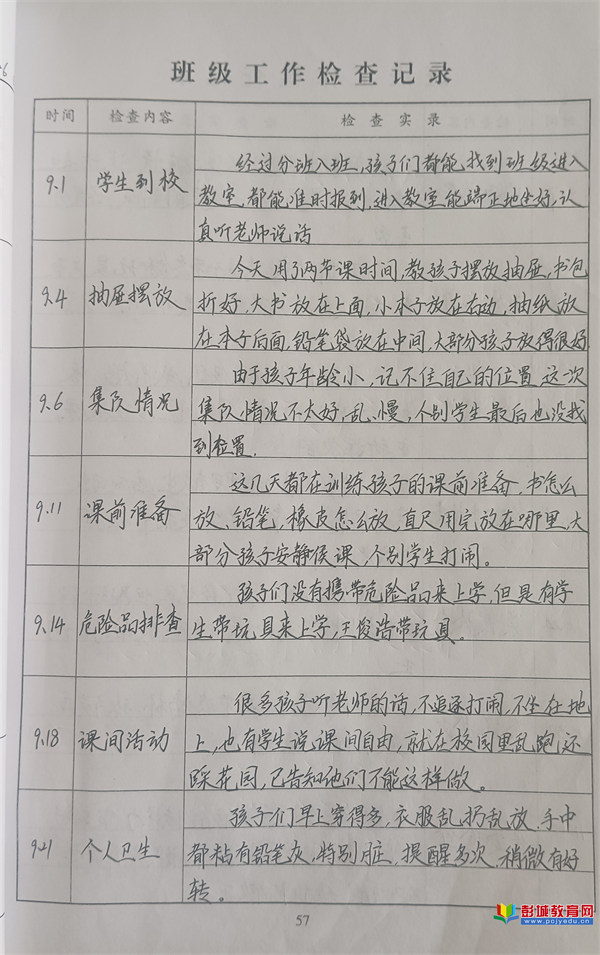 班级工作检查记录
时间 检查内容 检查实录
9.1 学生到校 经过分班入班,孩子们都能找到班级进入
教室,都能准时报到,进入教室能端正地坐好,认
真听老师说话
9.4 抽屉摆放 今天用了两节课时间,教孩子摆放抽屉,书包
折好,大书放在上面,小本子放在右边,抽纸放
在本子后面,铅笔袋放在中间,大部分孩子放得很好.
9.6 集队情况 由于孩子年龄小,记不住自己的位置,这次
集队情况不太好,乱、慢,个别学生最后也没找
到位置.
9.11 课前准备 这几天都在训练孩子的课前准备,书怎么
放、铅笔,橡皮怎么放,直尺用完放在哪里,大
部分孩子安静侯课,个别学生打闹。
9.14 危险品排查 孩子们没有携带危险品来上学,但是有学
生带玩具来上学,王俊浩带玩具。
9.18 课间活动 很多孩子听老师的话,不追逐打闹,不坐在地
上,也有学生说课间自由,就在校园里乱跑,还
踩花园,已告知他们不能这样做。
9.21 个人卫生 孩子们早上穿得多,衣服乱扔乱放,手中
都粘有铅笔灰,特别脏,提醒多次,稍微有好
转。
57
彭城教育网
www.pcjyedu.cn